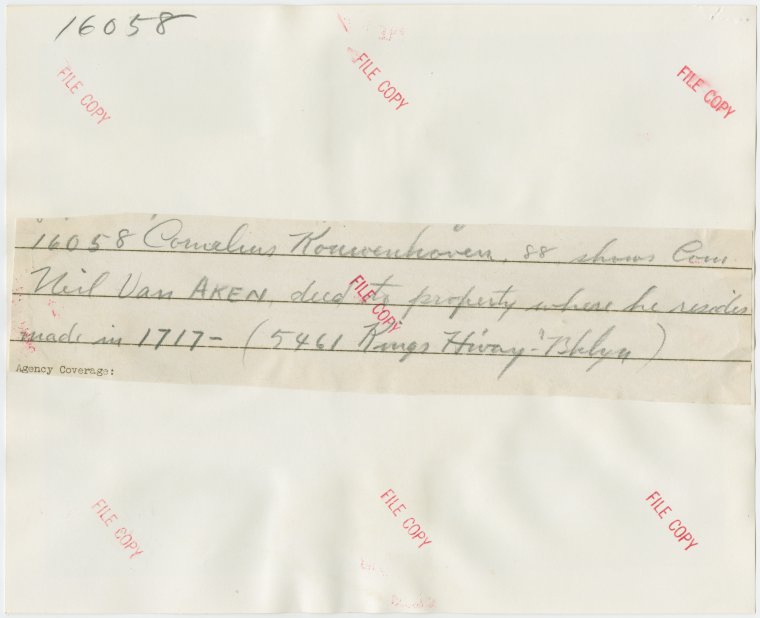 16058
FILE COPY
FILE COPY
FILE COPY
16058 "Cornelius Kouwenhoven", 88 shows Com
Neil Van AKEN, deed to property where he resides
FILE COPY
made in 1717- (5461 Kings Hiway-Bklyn)
Agency Coverage:
FILE COPY
FILE COPY
FILE COPY